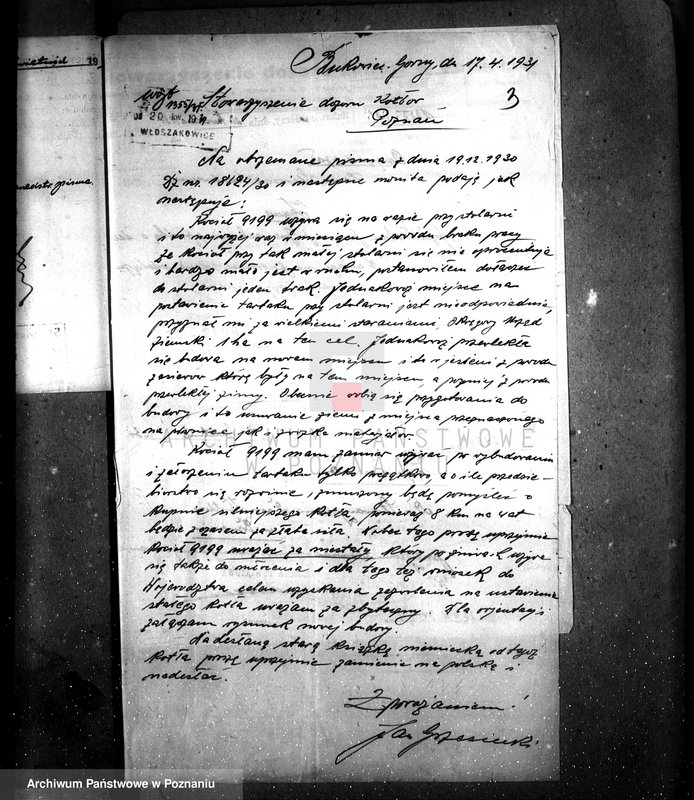 Bukowiec Górny, dn 17.4.1931
3
Stowarzyszenie dozoru Kotłów
Poznań
20 kw. 1931
WŁOSZAKOWICE
Na otrzymane pisma z dnia 19.12.1930
Dz nr. 18624/30 i następne monita podaję jak
następuje:
Kocioł 9199 używa się na razie przy stolarni
i to najwyżej raz w miesiącu z powodu braku pracy
że kocioł przy tak małej stolarni się nie oprocentuje
i bardzo mało jest w ruchu, postanowiłem dołączyć
do stolarni jeden trak. Jednakowoż miejsce na
postawienie tartaku przy stolarni jest nieodpowiednie,
przyznał mi za wielkiemi staraniami Okręgowy Urząd
Ziemski 1 ha na ten cel. Jednakowoż przewlekła
się budowa na nowem miejscu i to w jesieni z powodu
zasiewów które były na tem miejscu, a później z powodu
przewlekłej zimy. Obecnie robią się przygotowania do
budowy i to usuwanie ziemi z miejsca przeznaczonego
na jak i zwózka materjałów.
Kocioł 9199 mam zamiar używać po wybudowaniu
i założeniu tartaku tylko początkowo, a o ile przedsię-
biorstwo się rozwinie, zmuszony będę pomyśleć o
kupnie silniejszego kotła, ponieważ 8 km na
będzie czasem za słaba siła. Wobec tego proszę uprzejmie
kocioł 9199 uważać za niestały, który po żniwach używa
się także do młócenia i dla tego też wniosek do
Województwa celem uzyskania zezwolenia na ustawienie
stałego kotła uważam za zbyteczny. Dla orjentacji
załączam rysunek nowej budowy.
Nadesłaną starą książkę niemiecką od tegoż
kotła proszę uprzejmie zamienić na polską i
nadesłać.
Z poważaniem!
Jan
ARCHIWUM PAŃSTWOWE
W POZNANIU
Archiwum Państwowe w Poznaniu